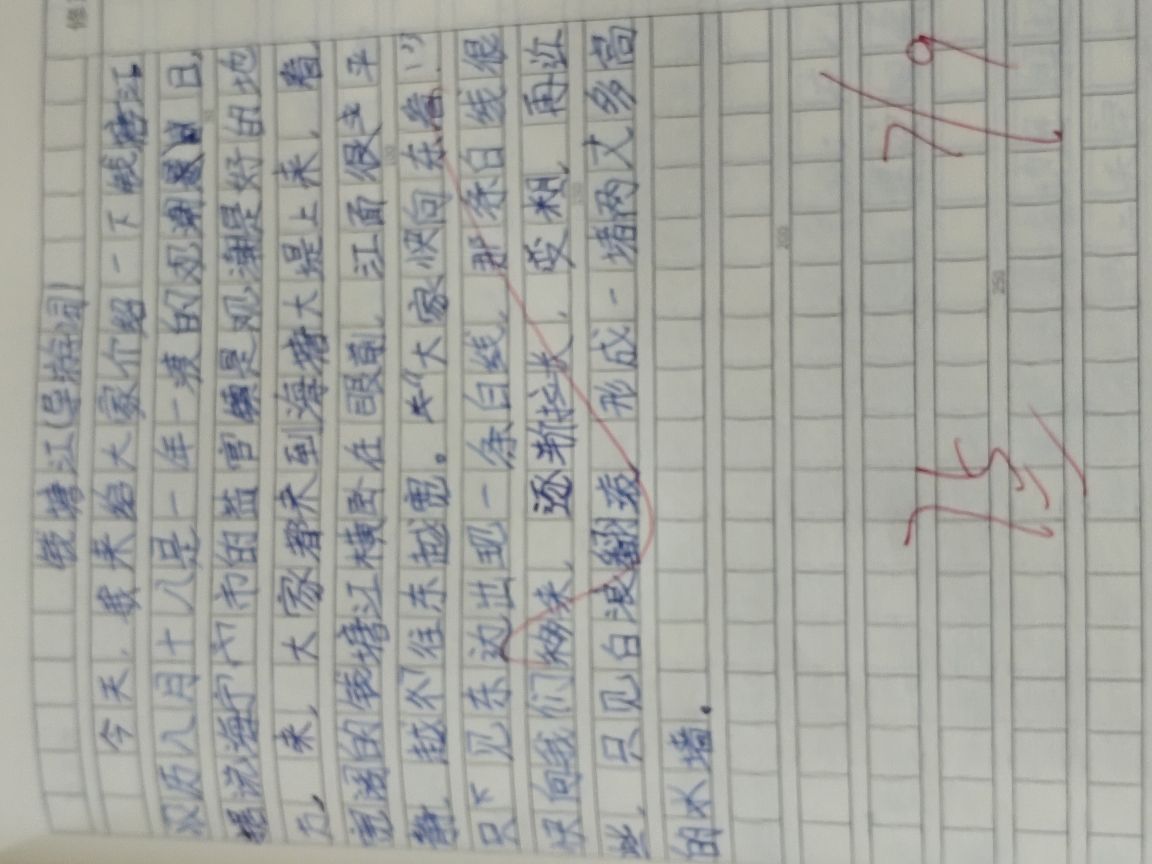 钱塘江(导游词)
今天,我来给大家介绍一下钱塘江
农历八月十八是一年一度的观潮日,
据说海宁市的盐官镇是观潮最好的地
方。来,大家都来到海塘大堤上来,看
宽阔的钱塘江横卧在眼前。江面很平
静,越往东越宽。“大家快向东看!”
只见东边出现一条白线。那条白线很
快向我们移来,逐渐拉长,变粗,再近
些,只见白浪翻滚,形成一堵两丈多高
的水墙。
7/9